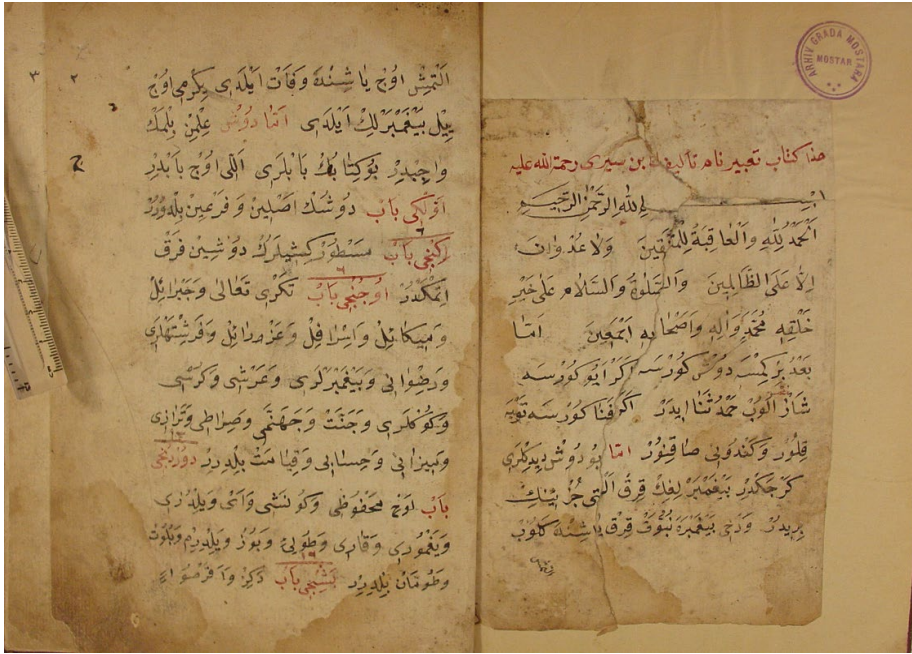 ARHIV GRADA MOSTARA
MOSTAR
هذا كتاب تعبير نام تاليف ابن سيرى رحمة الله عليه
بسم الله الرحمن الرحيم
الحمد لله والعاقبة للمتقين ولا عدوان
الا على الظالمين والصلوة والسلام على خير
خلقه محمد واله واصحابه اجمعين اما
بعد بر كمسه دوش كورسه اكر ايو كورسه
شاذ اولوب حمد ثنا ايدر اكر فنا كورسه توبه
قلور وكندونى صاقنور اما بو دوش ديدكلرى
كرجكدر بيغمبرلغك قرق التى جزئينك
بريدر ودخى بيغمبره نبوت قرق ياشنه كلوب
٣ ٢
التمش اوج ياشنده وفات ايلدى يكرمى اوج
ييل بيغمبرلك ايلدى اما دوش علمن بلمك
واجبدر بو كتابك بابلرى اللى اوج بابدر
اولكى باب دوشك اصلين وفرعين بلدورر
اكنجى باب مسطور كشيلرك دوشين فرق
اتمكدر اوجنجى باب تكرى تعالى وجبرائل
وميكائل واسرافل وعزرائل وفرشتهلرى
ورضوانى وبيغمبرلرى وعرشى وكرسى
وكوكلرى وجنت وجهنمى وصراطى وترازى
وميزانى وحسابى وقيامت بلدرر دوردنجى
باب لوح محفوظى وكونشى وآيى ويلدزى
ويغمورى وقارى وطولى وبوز ويلدرم وبلوت
وطومان بلدرر بشنجى باب دكز